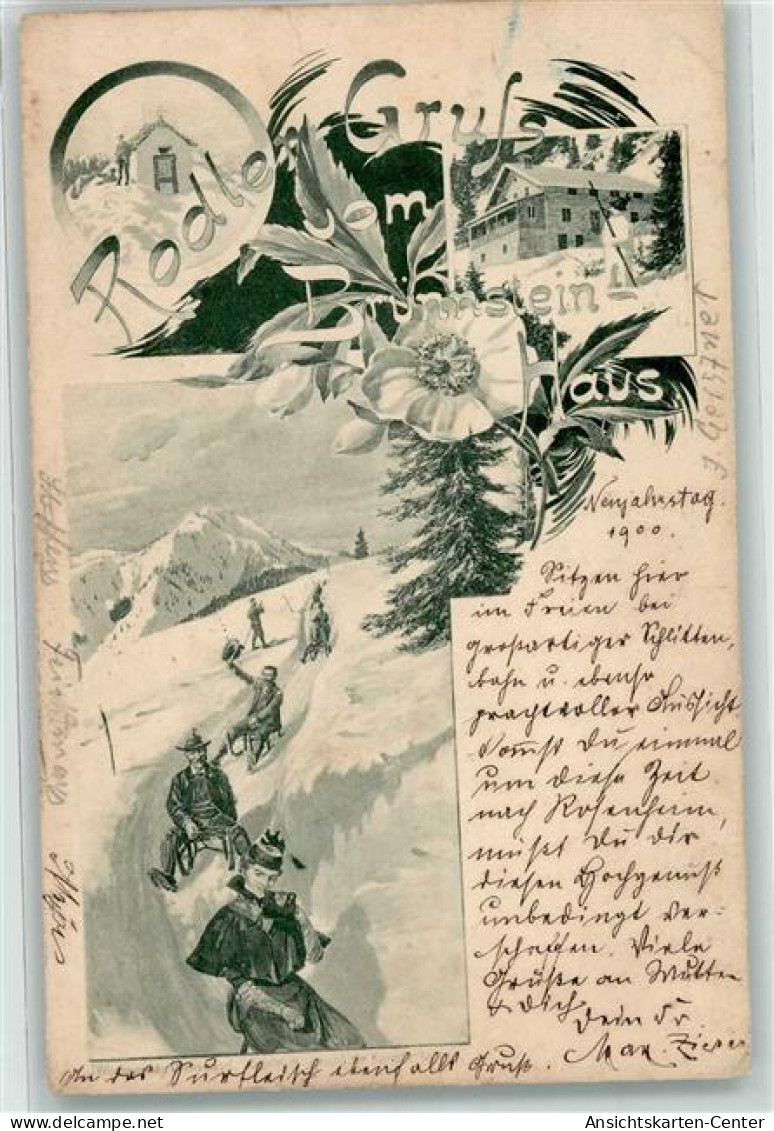 Rodler Gruss
vom
Brünnstein
Haus
Neujahrstag.
1900.
Sitzen hier
im Freien bei
großartiger Schlitten,
bahn u. ebenso
prachtvoller Aussicht.
Kommst Du einmal
um diese Zeit
nach Rosenheim,
mußt Du dir
diesen Hochgenuß
unbedingt ver-
schaffen. Viele
Grüße an Mutter
& Dich
Dein Fr.
Max.
An das Surfleisch ebenfalls Gruß.
Ansichtskarten-Center